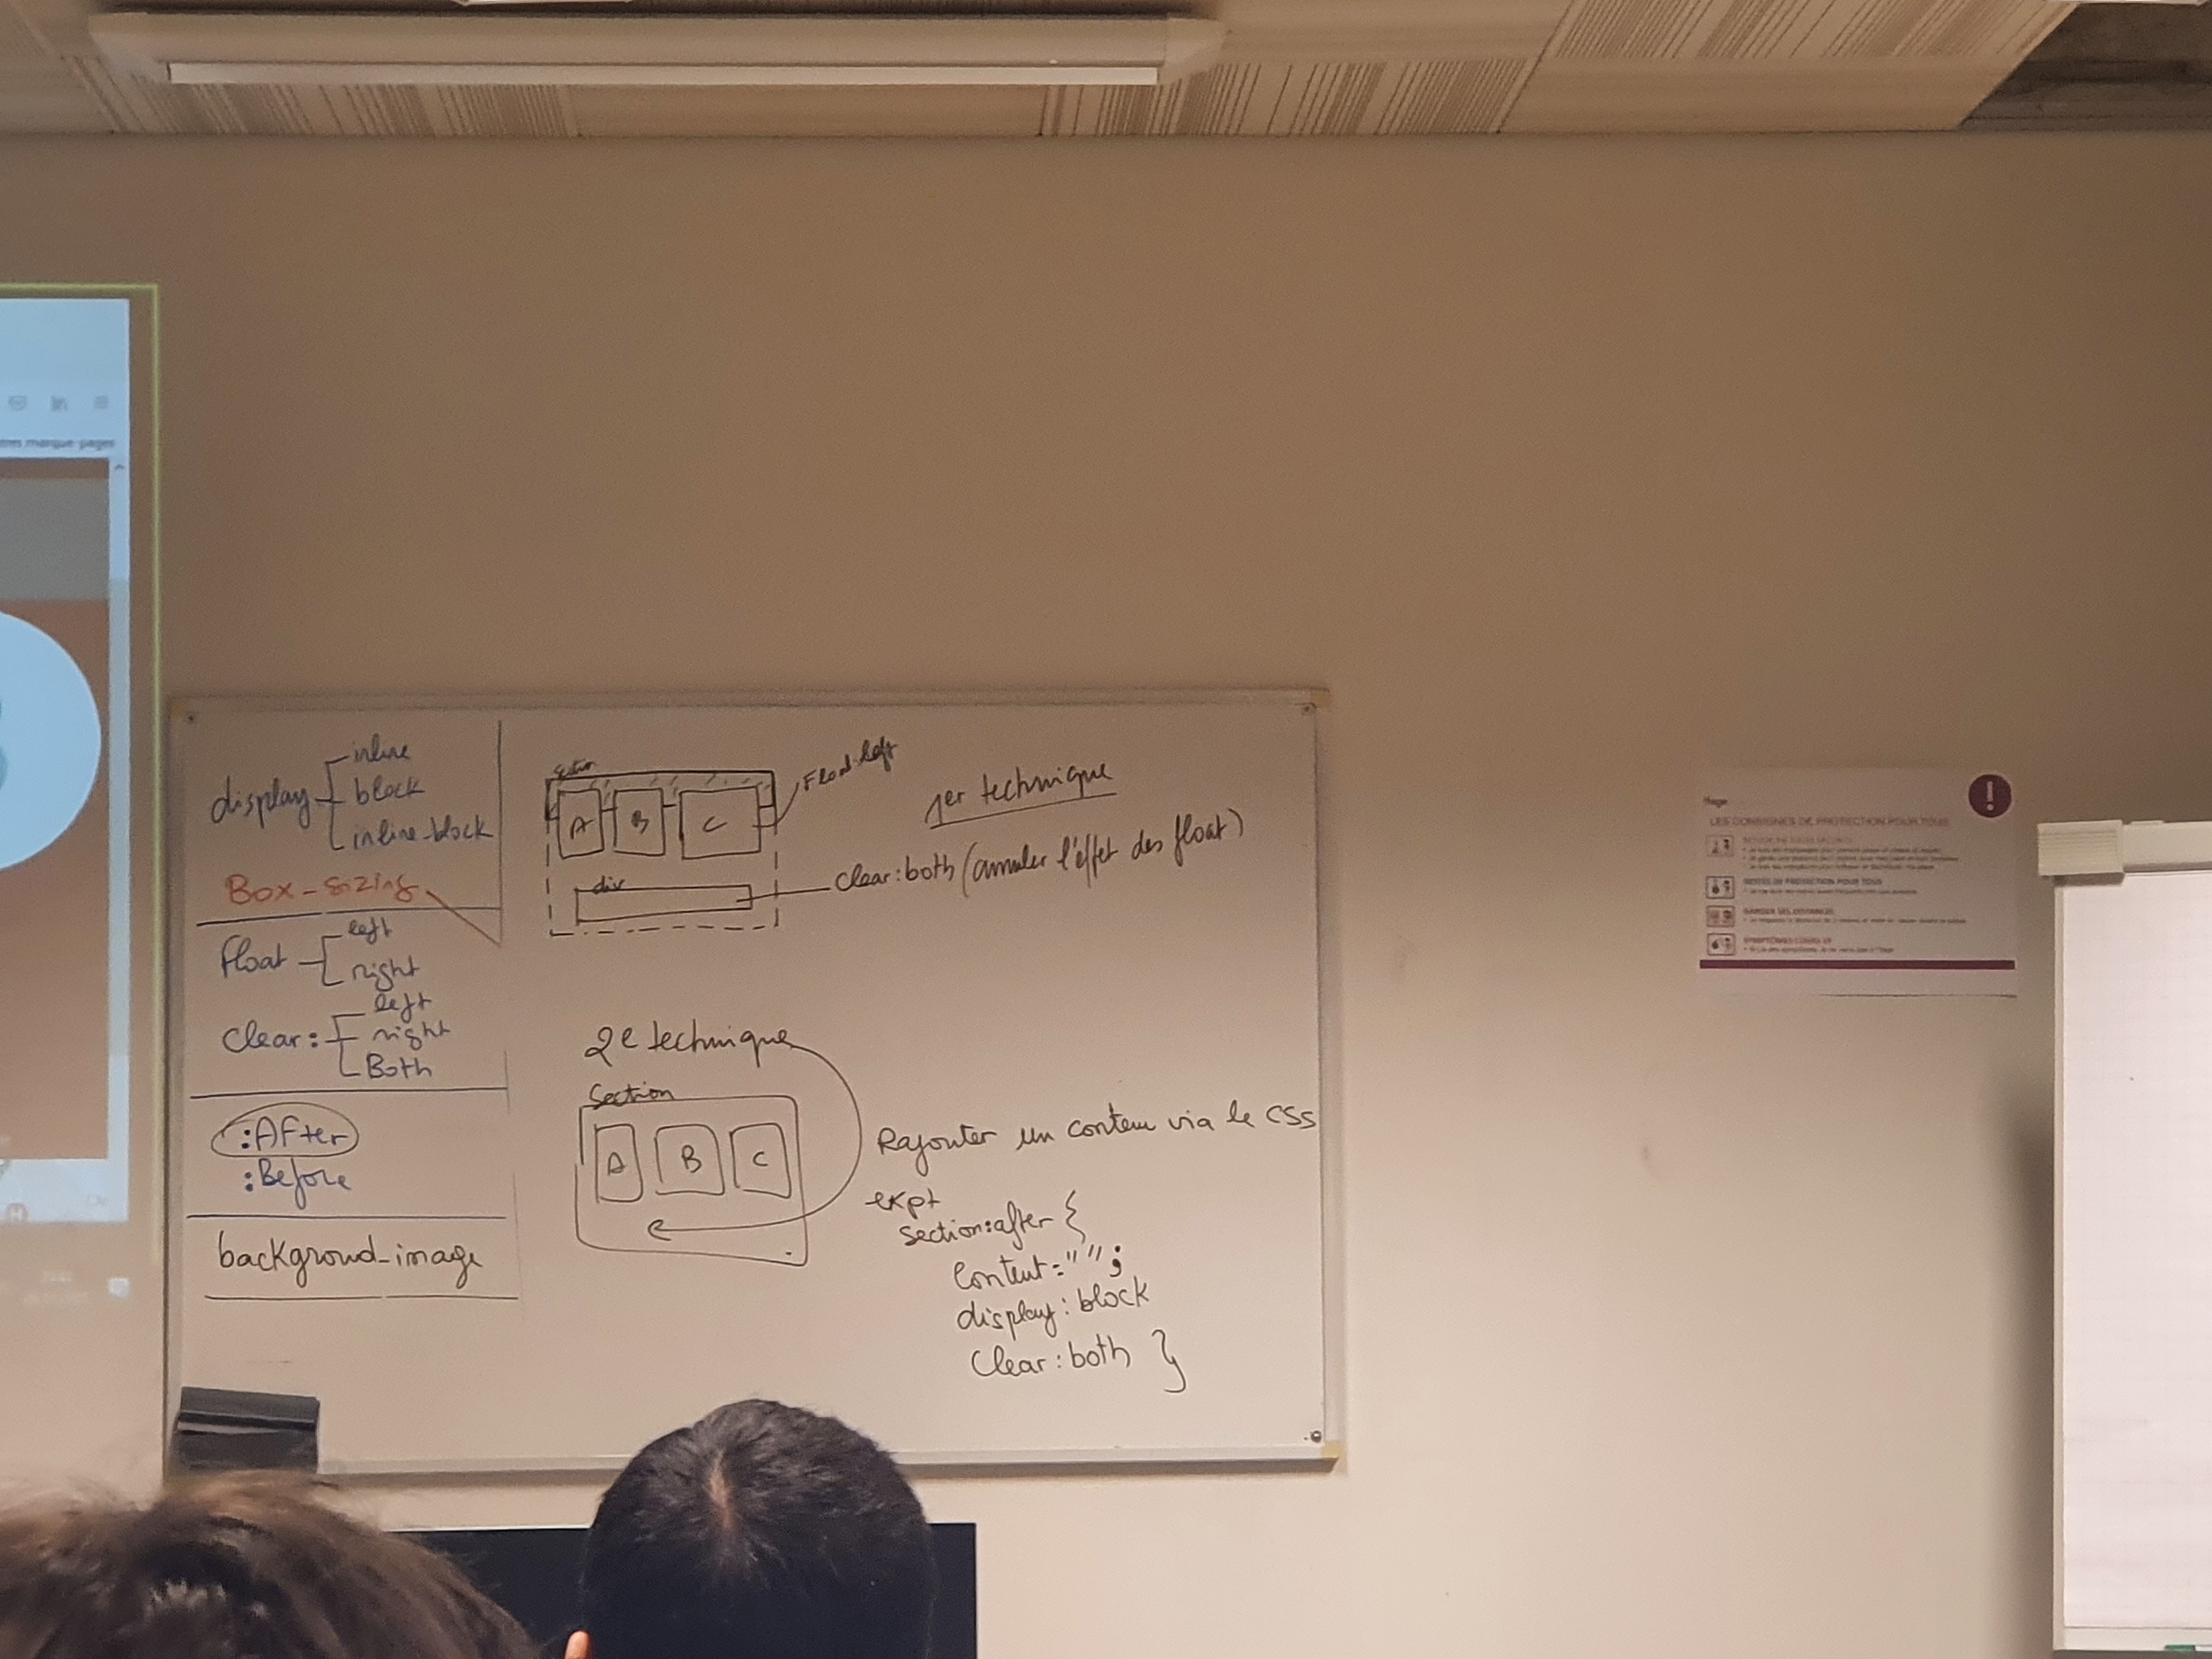 display
inline
block
inline-block
Box-sizing
Float
left
right
Clear:
left
right
Both
:After
:Before
backgroud-image
A
B
C
Float left
div
1er technique
clear:both (annuler l'effet des float)
2e technique
Section
A
B
C
Rajouter un contenu via le CSS
section:after {
Content=" ";
display: block
Clear: both }
marque-pages
LES CONSIGNES DE PROTECTION POUR TOUS
GESTES DE PROTECTION POUR TOUS
GARDER SES DISTANCES
SYMPTÔMES COVID-19